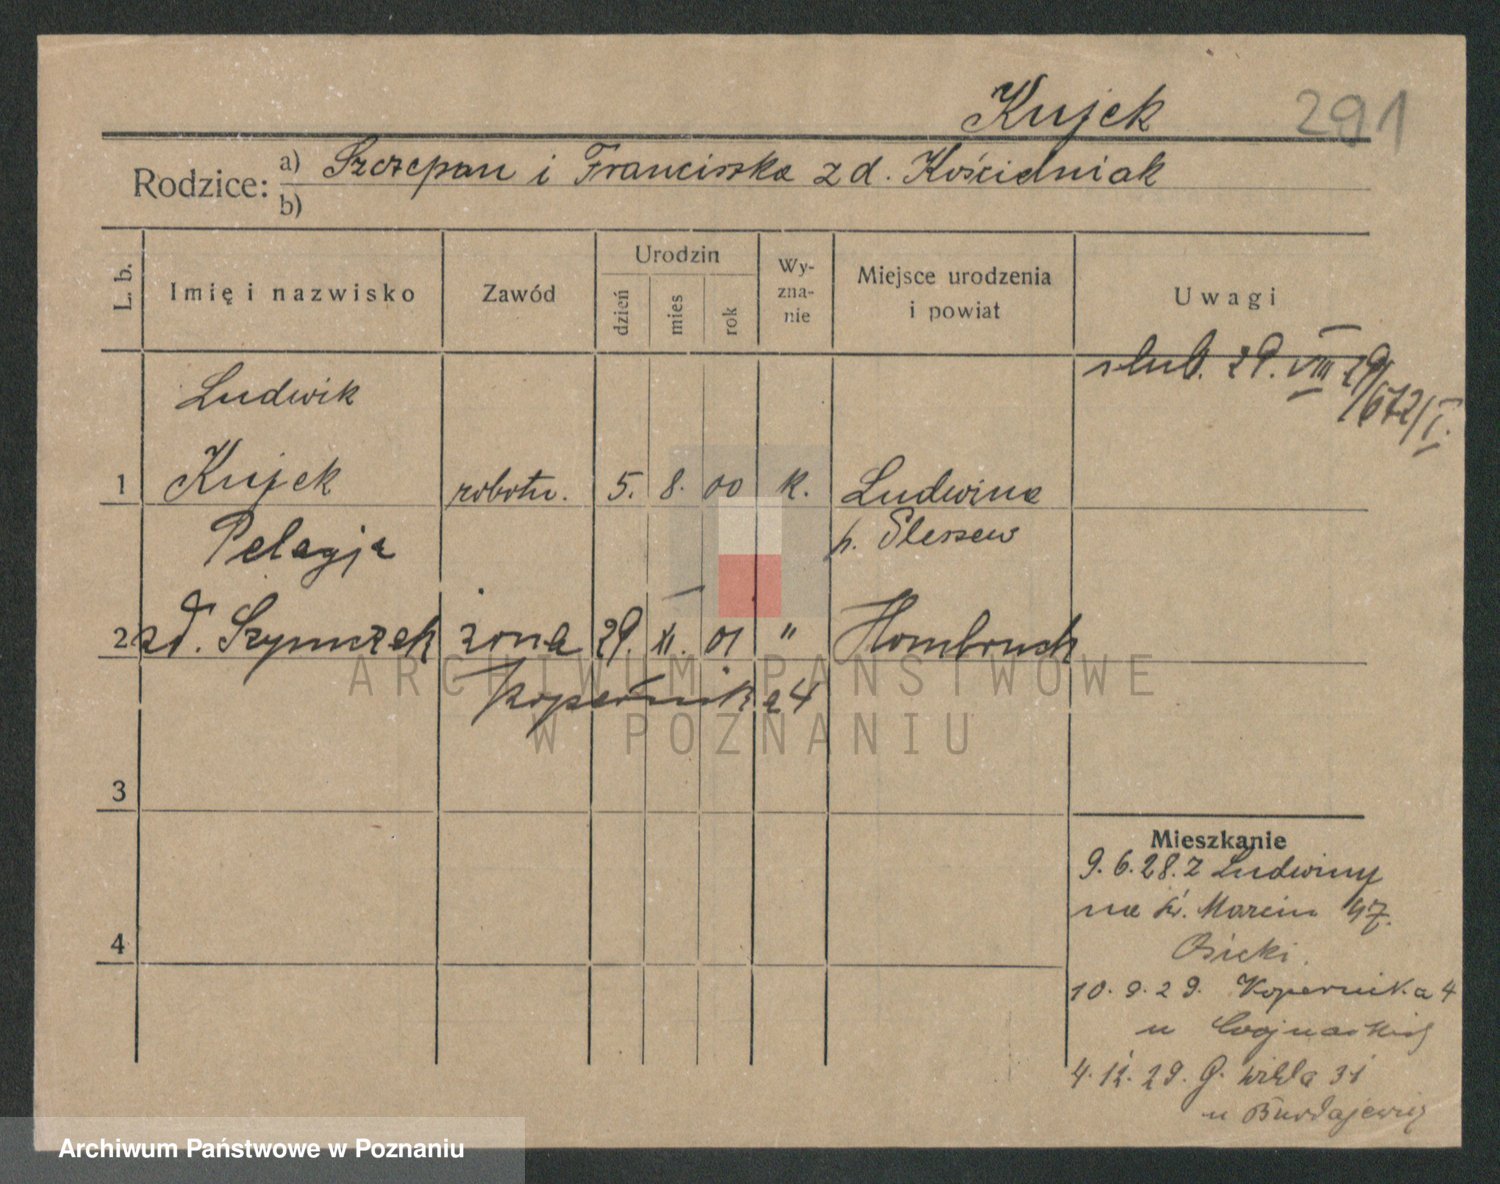 Kujek 291
Rodzice: a) Szczepan i Franciszka z d. Kościelniak
b)
L. b. Imię i nazwisko Zawód Urodzin dzień mies rok Wy-zna-nie Miejsce urodzenia i powiat Uwagi
ślub. 29. VIII 29/672/I.
Ludwik
1 Kujek robotn. 5. 8. 00 k. Ludwina
Pelagja p. Pleszew
2 zd. Szymczak żona 29. XI. 01 " Hombruch
Kopernika 4
ARCHIWUM PAŃSTWOWE
W POZNANIU
3
Mieszkanie
9. 6. 28. z Ludwiny
na św. Marcin 47.
4
Osicki.
10. 9. 29. Kopernika 4
u
4. 12. 29. G. Wilda 31
u
Archiwum Państwowe w Poznaniu